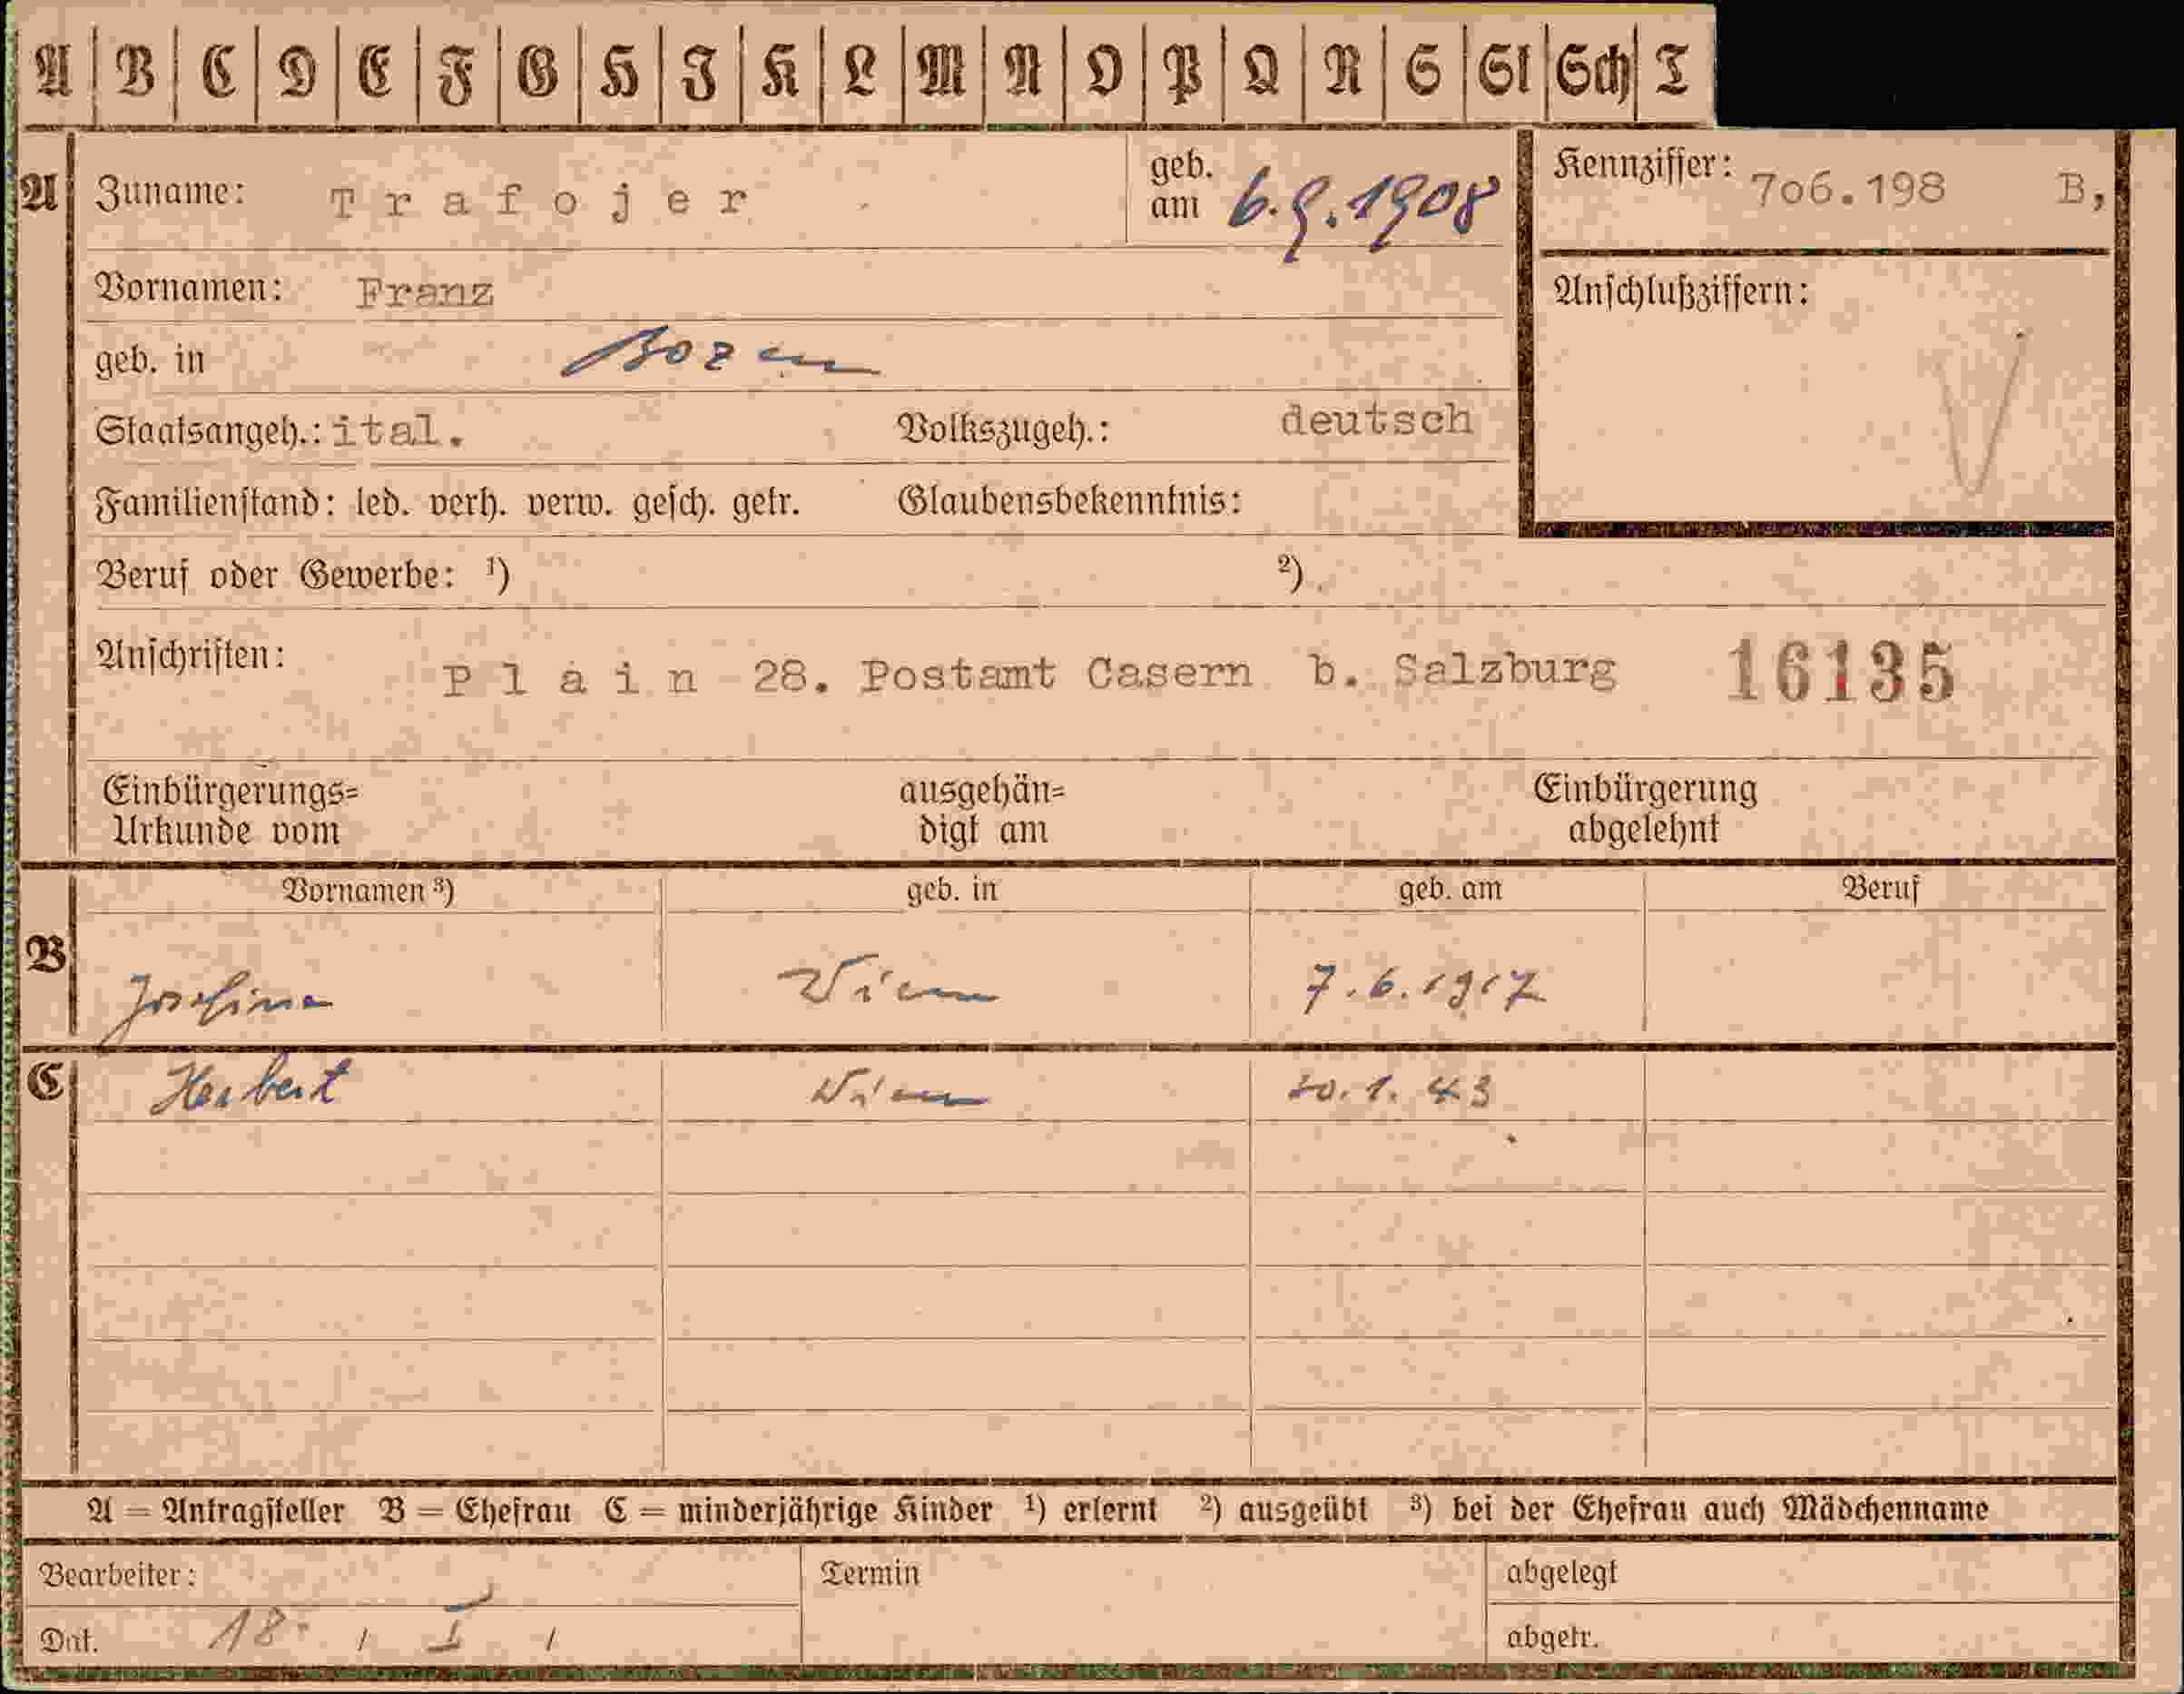 A B C D E F G H J K L M N O P Q R S St Sch T
A Zuname: Trafojer geb. am 6.9.1908 Kennziffer: 706.198 B,
Vornamen: Franz Anschlußziffern:
geb. in Bozen
Staatsangeh.: ital. Volkszugeh.: deutsch
Familienstand: led. verh. verw. gesch. getr. Glaubensbekenntnis:
Beruf oder Gewerbe: ¹) ²)
Anschriften: Plain 28. Postamt Casern b. Salzburg 16135
Einbürgerungs= ausgehän= Einbürgerung
Urkunde vom digt am abgelehnt
Vornamen ³) geb. in geb. am Beruf
B Josefina Wien 7.6.1917
C Herbert Wien 30.1.43
A = Antragsteller B = Ehefrau C = minderjährige Kinder ¹) erlernt ²) ausgeübt ³) bei der Ehefrau auch Mädchenname
Bearbeiter: Termin abgelegt
Dat. 18. / I / abgetr.